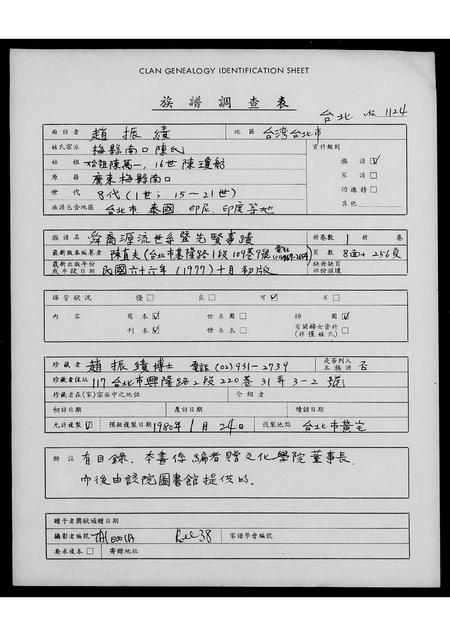 CLAN GENEALOGY IDENTIFICATION SHEET
族譜調查表
台北 No 1124
面訪者 趙振績 地區 台湾台北市
姓氏宗派 梅縣南口陳氏 資料類別
始祖 始祖陳萬一，16世陳瓊彩 族譜 ☑
原籍 廣東梅縣南口 家譜 □
世代 8代（1世；15～21世） 功德榜 □
族譜包含地區 台北市、泰國、印尼、印度等地 其他
族譜名 舜裔源流世系暨先賢事蹟 冊卷數 1 冊 卷
最新版本編纂者 陳直夫（台北市基隆路1段109巷9號 頁數 8面+256頁
最新出版年份或手段日期 民國六十六年（1977）十月初版 缺冊缺頁部份損壞
保管狀況 優 □ 良 □ 可 ☑ 劣 □
內容 寫本 ☑ 世系圖 □ 插圖 ☑
刊本 ☑ 世系表 □ 有關婦女資料（非僅姓氏） □
珍藏者 趙振績博士 電話（02）931-2739 是否列入本族譜 否
珍藏者住址 117台北市興隆路2段220巷31弄3-2號
珍藏者在（家）宗族中之地位 介紹者
初訪日期 度訪日期 續訪日期
允許複製 ☑ 擬複製日期 1980年1月24日 複製地點 台北市黄宅
附註 有目録。本書係編者贈文化學院董事長，
而後由該院圖書館提供的。
贈予者獎狀頒贈日期
攝影者編號 Roll 38 家譜學會編號
要求複本 □ 寄贈地址